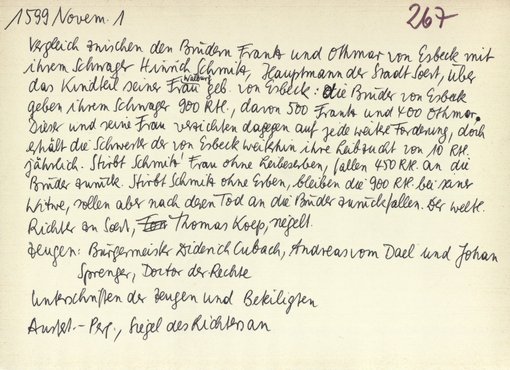 1599 Novem. 1
267
Vergleich zwischen den Brüdern Frank und Othmar von Esbeck mit
ihrem Schwager Hinrich Schmitz, Hauptmann der Stadt Soest, über
das Kindteil seiner Frau Walburg geb. von Esbeck: die Brüder von Esbeck
geben ihrem Schwager 900 Rtl., davon 500 Frank und 400 Othmar.
Dieser und seine Frau verzichten dagegen auf jede weitere Forderung, doch
erhält die Schwester der von Esbeck weiterhin ihre Leibzucht von 10 Rtl.
jährlich. Stirbt Schmitz' Frau ohne Leibeserben, fallen 450 Rtl. an die
Brüder zurück. Stirbt Schmitz ohne Erben, bleiben die 900 Rtl. bei seiner
Witwe, sollen aber nach deren Tod an die Brüder zurückfallen. Der weltl.
Richter zu Soest, Thomas Koep, siegelt.
Zeugen: Bürgermeister Diderich Cubach, Andreas vom Dael und Johan
Sprenger, Doctor der Rechte
Unterschriften der Zeugen und Beteiligten
Ausf.- Perg., Siegel des Richters an